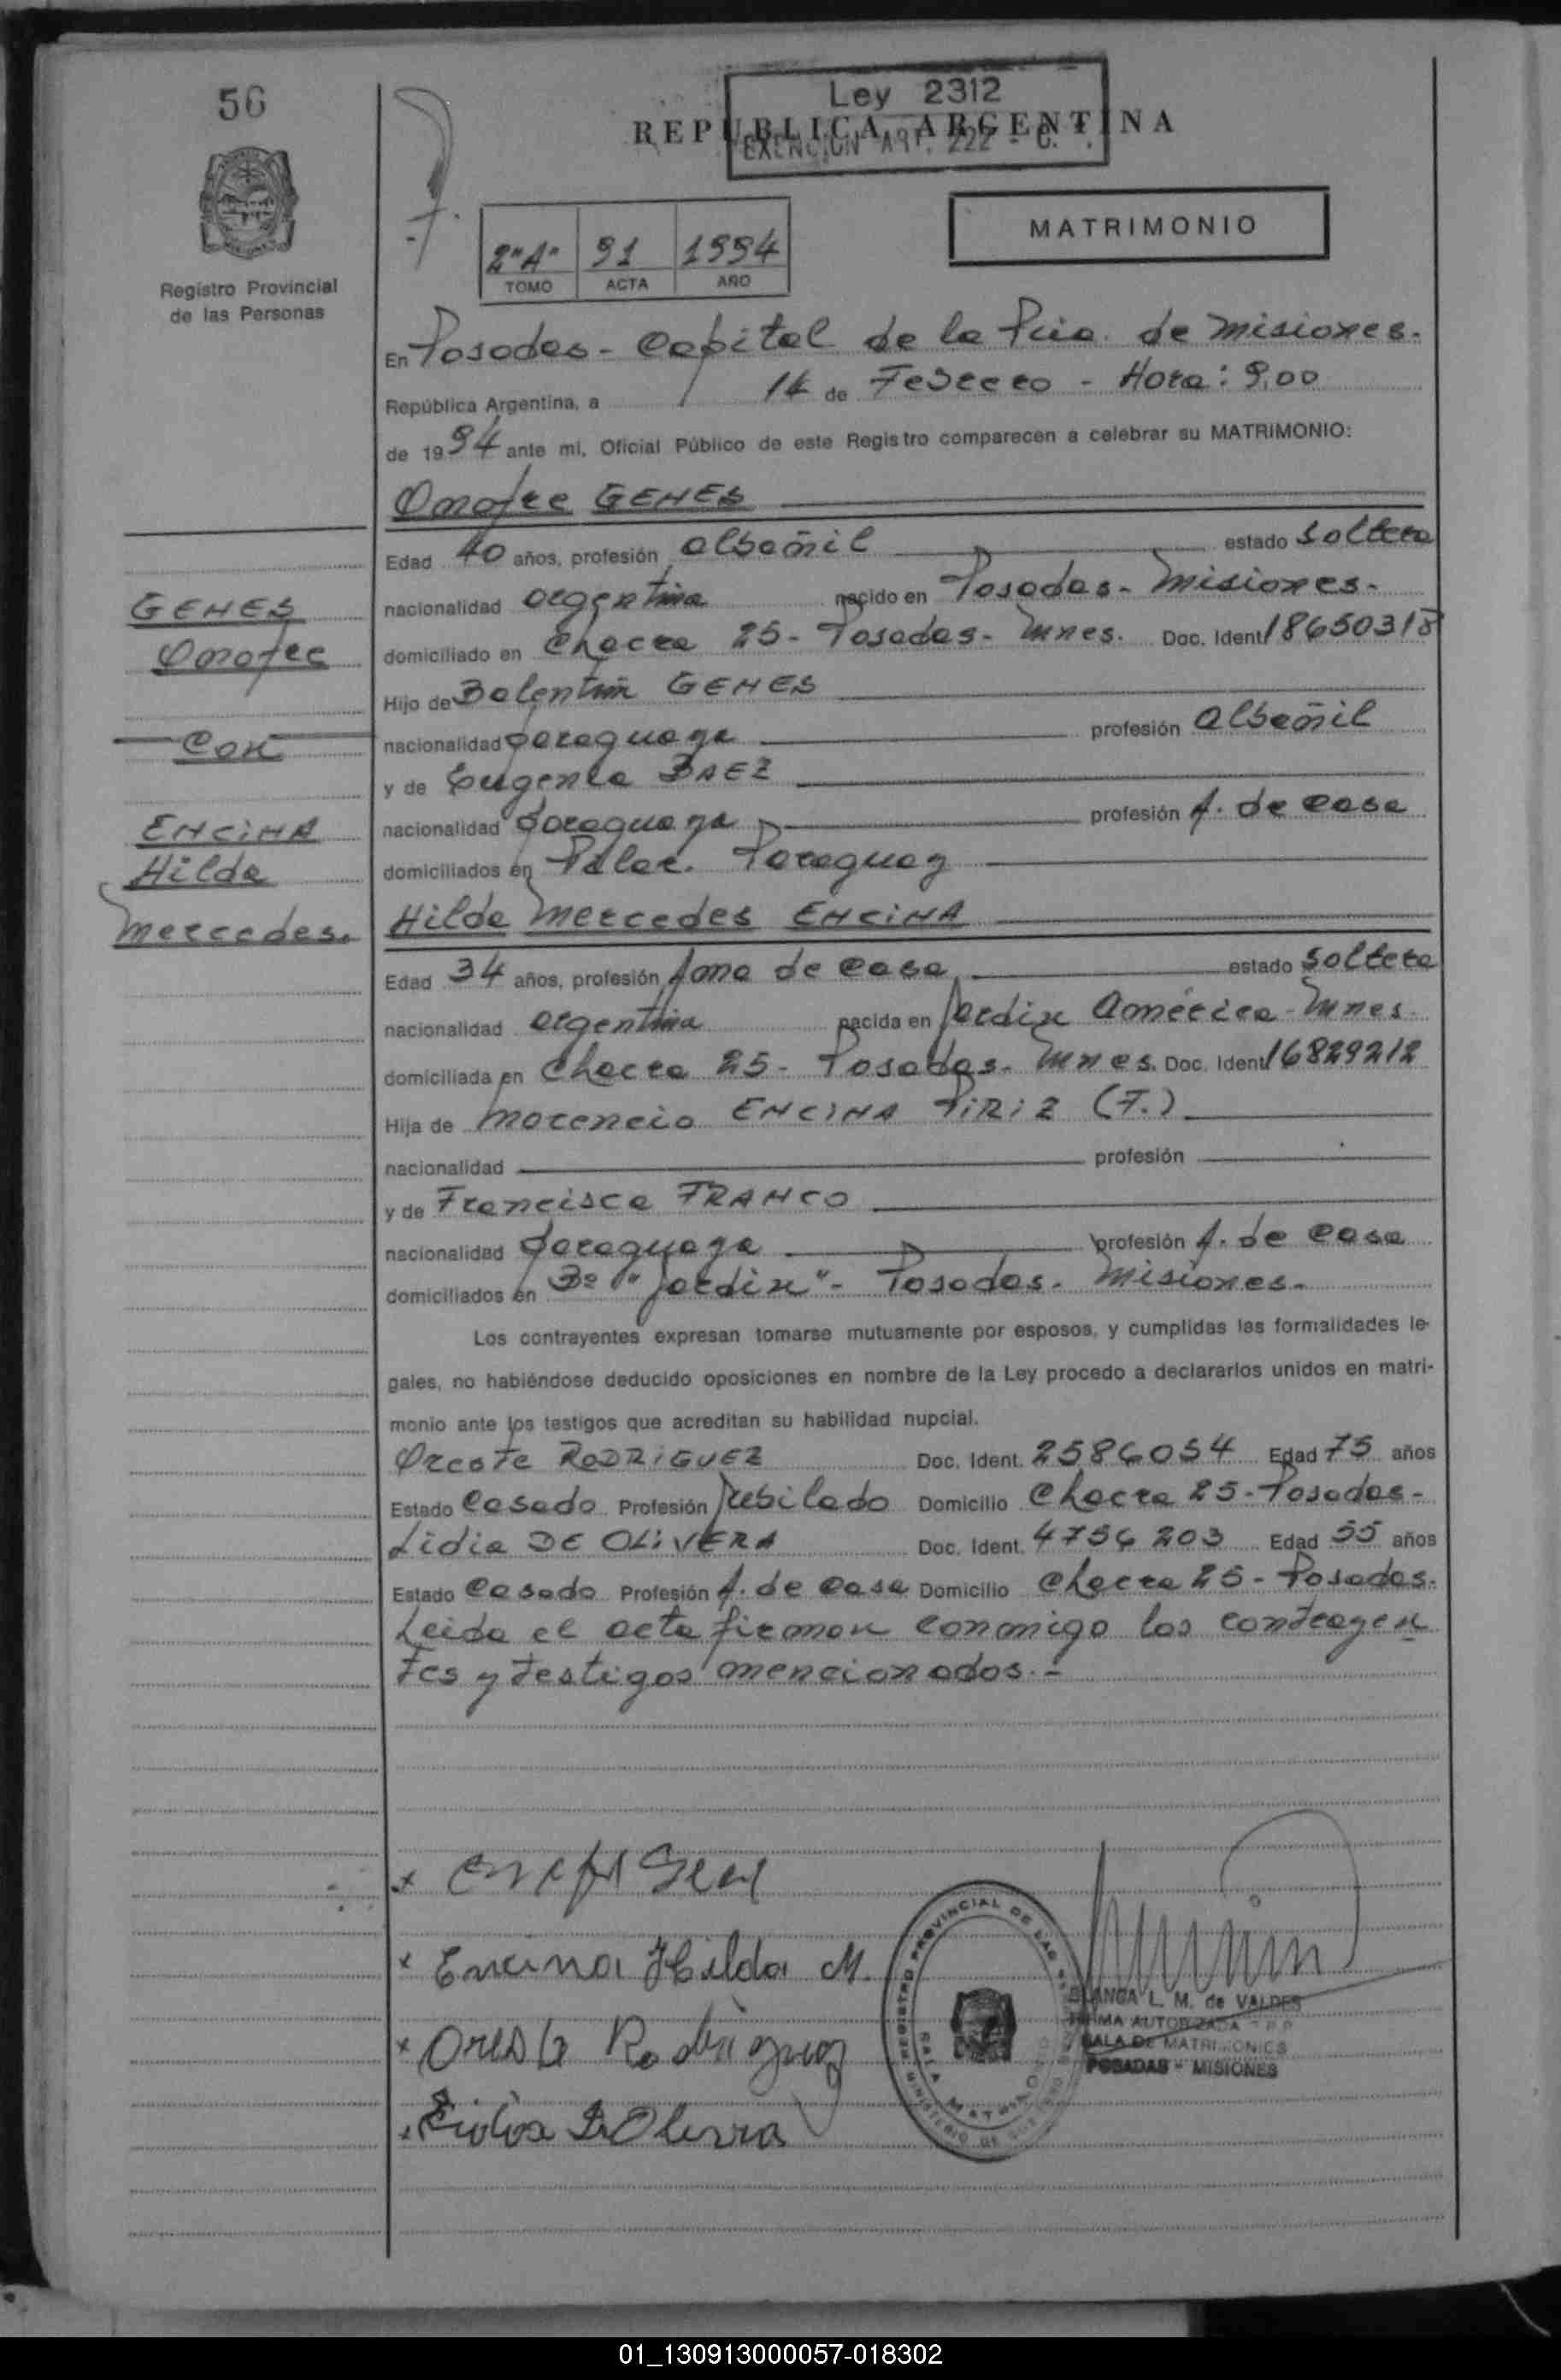 56
Ley 2312
REPUBLICA ARGENTINA
EXENCION ART. 222 - C.
MATRIMONIO
2"A" 91 1994
TOMO ACTA AÑO
Registro Provincial
de las Personas
En Posadas - Capital de la Pcia. de Misiones.
República Argentina, a 14 de Febrero - Hora: 9,00
de 1994 ante mi, Oficial Público de este Registro comparecen a celebrar su MATRIMONIO:
Onofre GENES
Edad 40 años, profesión albañil estado soltero
nacionalidad argentina nacido en Posadas - Misiones.
domiciliado en Chacra 25 - Posadas - Mnes. Doc. Ident. 18650318
Hijo de Balentin GENES
nacionalidad paraguaya profesión albañil
y de Eugenia BAEZ
nacionalidad paraguaya profesión A. de casa
domiciliados en Pilar. Paraguay
GENES
Onofre
Con
ENCINA
Hilda
Mercedes.
Hilda Mercedes ENCINA
Edad 34 años, profesión Ama de casa estado soltera
nacionalidad argentina nacida en Jardin América - Mnes.
domiciliada en Chacra 25 - Posadas - Mnes. Doc. Ident. 16829212
Hija de Morencio ENCINA PIRIZ (F.)
nacionalidad profesión
y de Francisca FRANCO
nacionalidad paraguaya profesión A. de casa
domiciliados en Bº "Jardin" - Posadas - Misiones.
Los contrayentes expresan tomarse mutuamente por esposos, y cumplidas las formalidades le-
gales, no habiéndose deducido oposiciones en nombre de la Ley procedo a declararlos unidos en matri-
monio ante los testigos que acreditan su habilidad nupcial.
Oreste RODRIGUEZ Doc. Ident. 2586054 Edad 75 años
Estado Casado Profesión Jubilado Domicilio Chacra 25 - Posadas -
Lidia DE OLIVERA Doc. Ident. 4756203 Edad 55 años
Estado Casado Profesión A. de casa Domicilio Chacra 25 - Posadas.
Leida el acta firman conmigo los contrayen
tes y testigos mencionados.-
Encina Hilda M.
Oreste Rodriguez
Lidia D Olivera
REGISTRO PROVINCIAL DE LAS
BLANCA L. M. de VALDES
FIRMA AUTORIZADA
SALA DE MATRIMONIOS
POSADAS - MISIONES
01_130913000057-018302